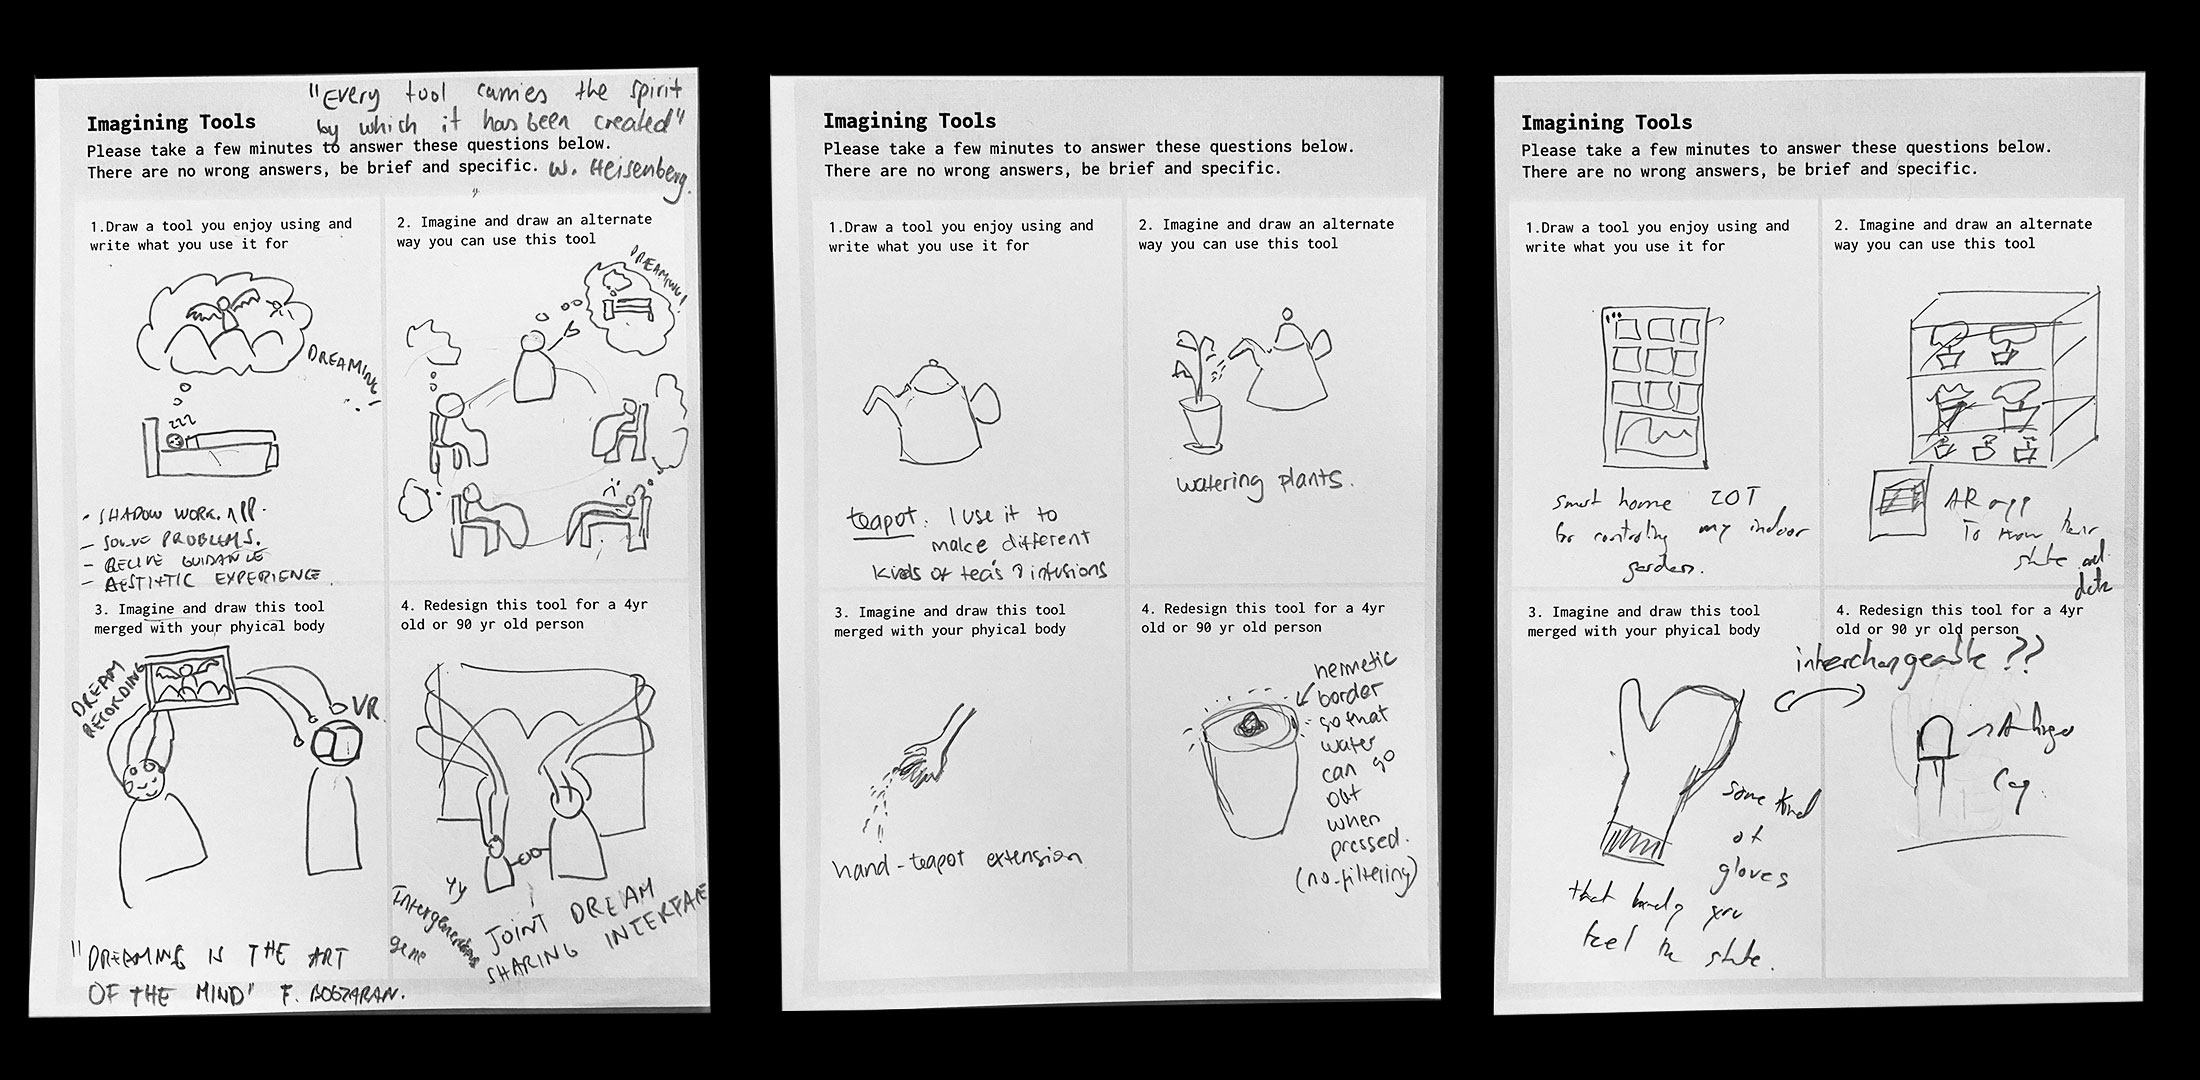 "Every tool carries the spirit
by which it has been created"
W. Heisenberg.
Imagining Tools
Please take a few minutes to answer these questions below.
There are no wrong answers, be brief and specific.
1.Draw a tool you enjoy using and
write what you use it for
DREAMING
zzz
- SHADOW WORK.
- SOLVE PROBLEMS.
- GUIDANCE
- EXPERIENCE.
2. Imagine and draw an alternate
way you can use this tool
DREAMING!
3. Imagine and draw this tool
merged with your phyical body
DREAM
RECORDING
VR
"DREAMING IS THE ART
OF THE MIND" F. BOGZARAN.
4. Redesign this tool for a 4yr
old or 90 yr old person
4y
JOINT DREAM
SHARING INTERFACE
Imagining Tools
Please take a few minutes to answer these questions below.
There are no wrong answers, be brief and specific.
1.Draw a tool you enjoy using and
write what you use it for
teapot. I use it to
make different
kinds of tea's & infusions
2. Imagine and draw an alternate
way you can use this tool
watering plants.
3. Imagine and draw this tool
merged with your phyical body
hand-teapot extension
4. Redesign this tool for a 4yr
old or 90 yr old person
hermetic
border
so that
water
can go
out
when
pressed.
(no-filtering)
Imagining Tools
Please take a few minutes to answer these questions below.
There are no wrong answers, be brief and specific.
1.Draw a tool you enjoy using and
write what you use it for
smart home IOT
for controling my indoor
garden.
2. Imagine and draw an alternate
way you can use this tool
AR app
To their
state and
data
3. Imagine and draw this tool
merged with your phyical body
some kind
of
gloves
that you
feel the state.
4. Redesign this tool for a 4yr
old or 90 yr old person
interchangeable ??